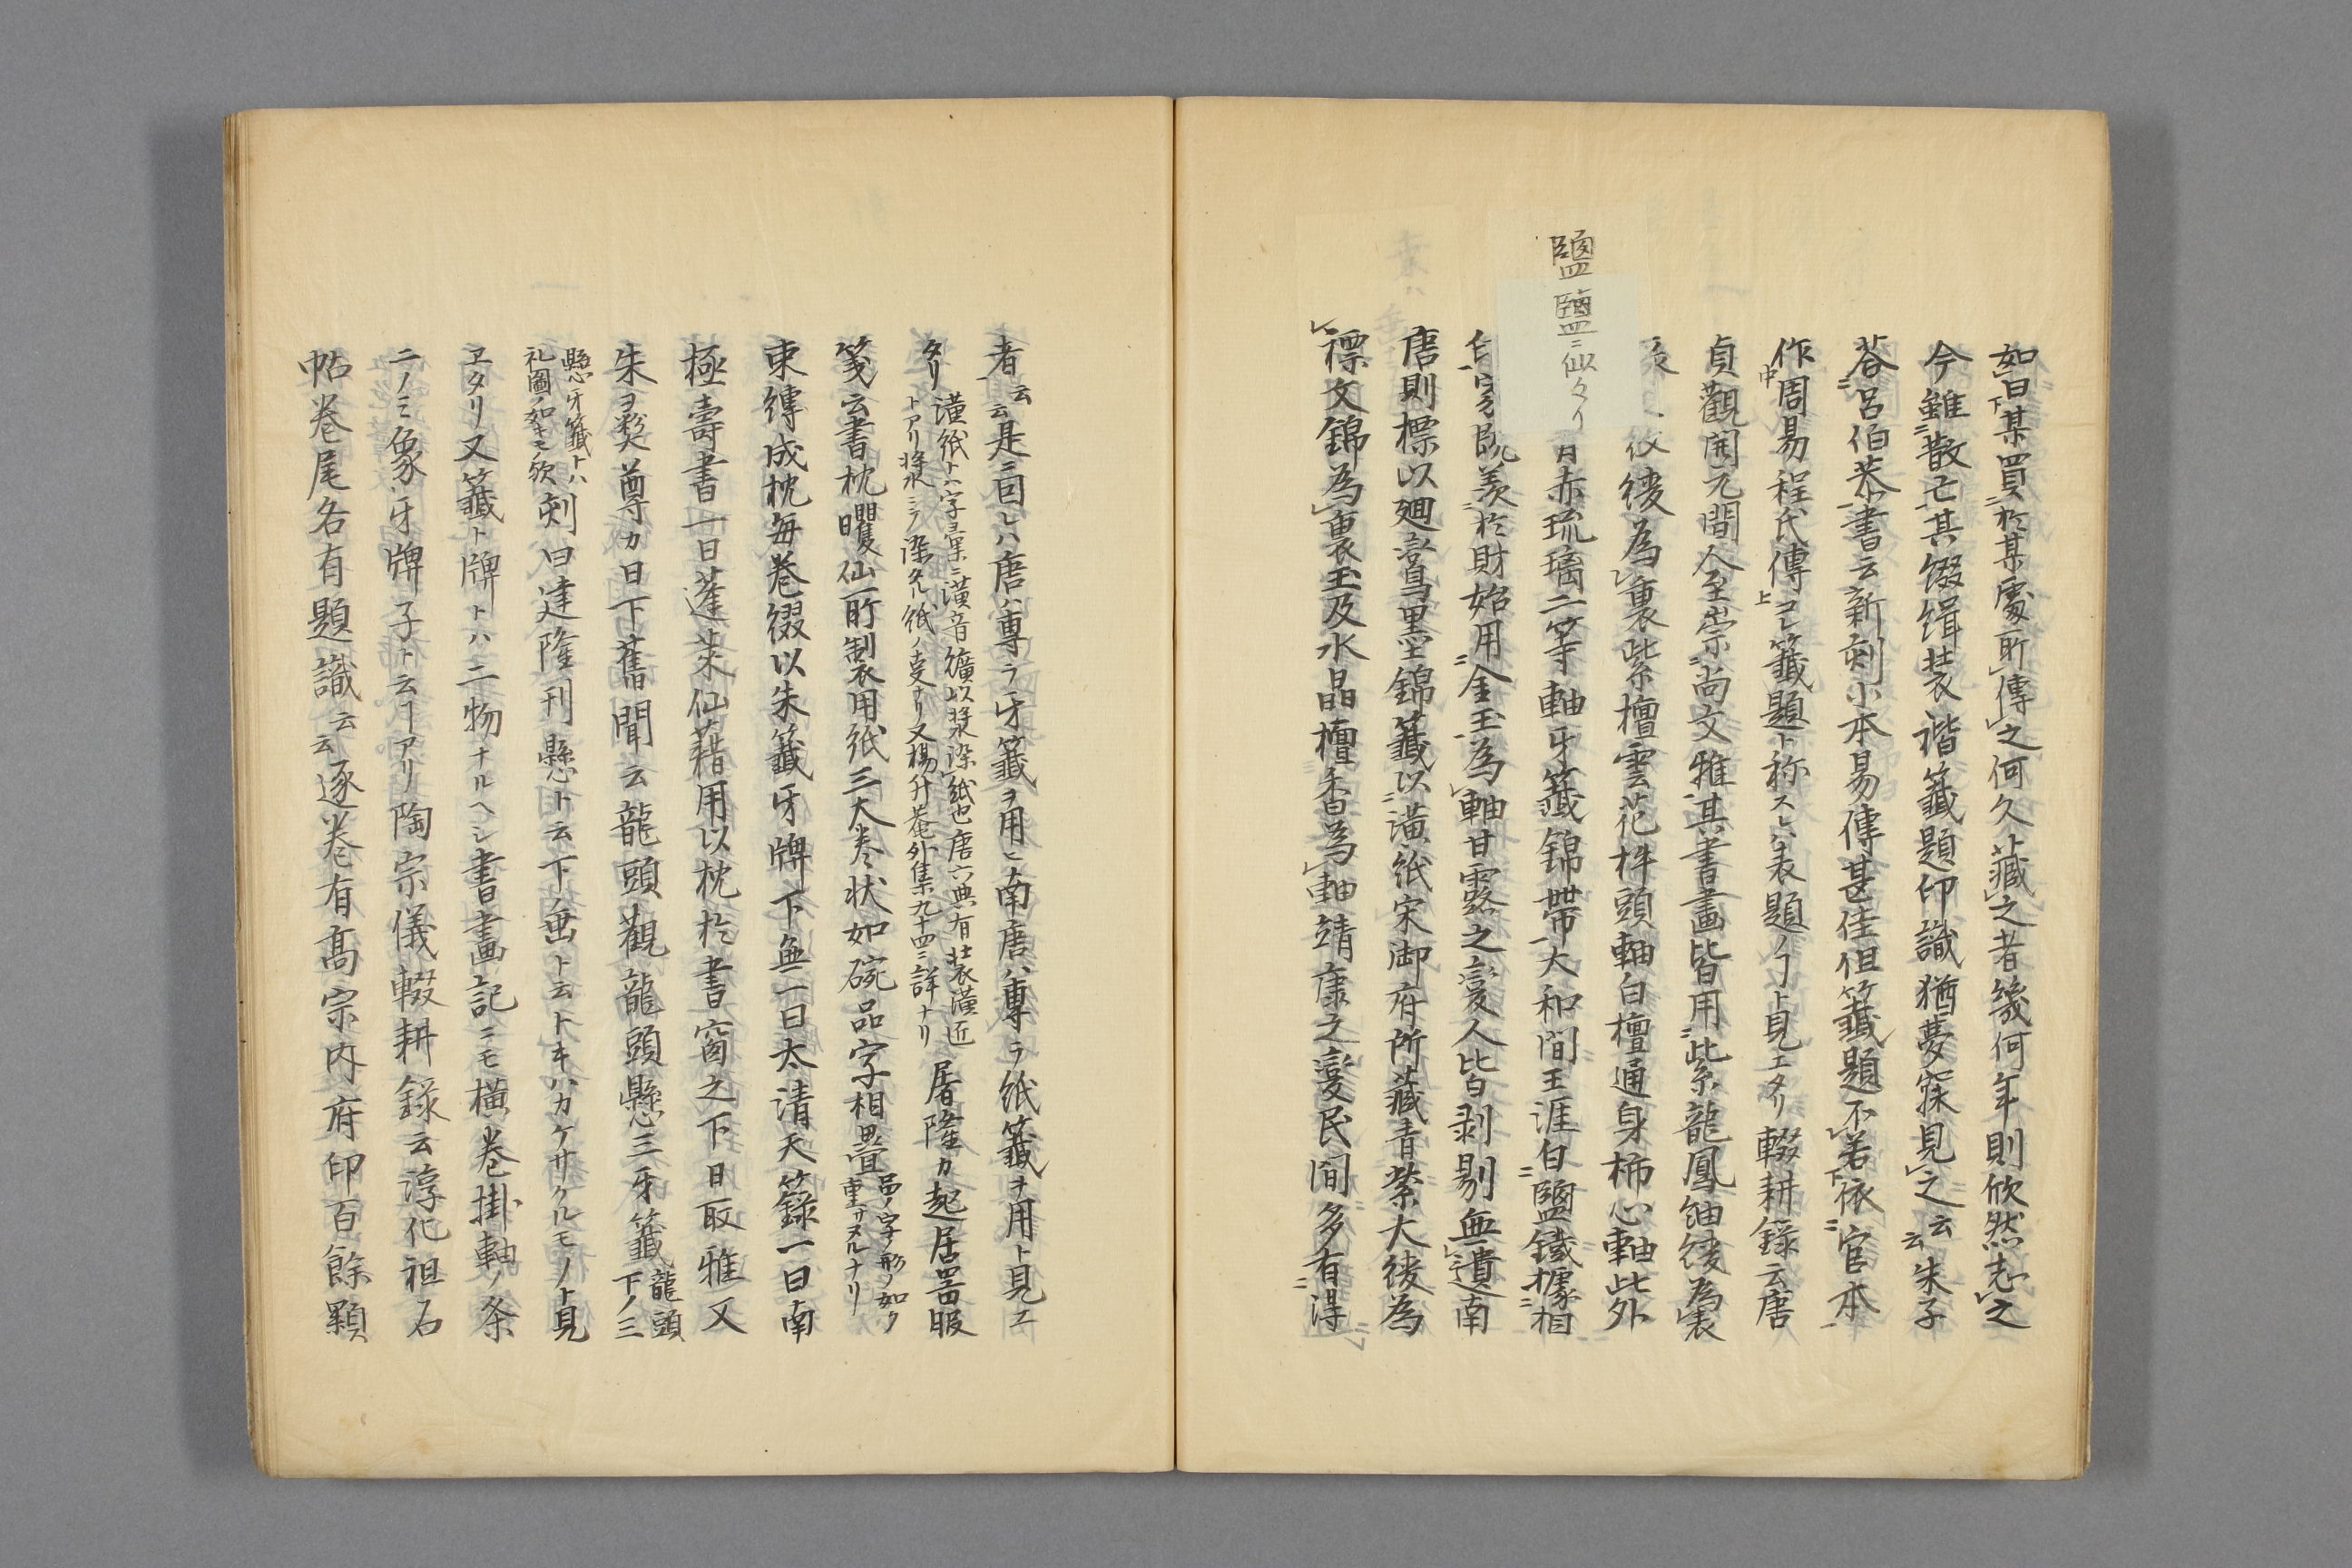 如曰某買於某處所傳之何久藏之者幾何年則欣然志之
今雖散亡其綴緝裝諧籤題印識猶夢寐見之云云朱子
荅呂伯恭書云新刻小本易傳甚佳但籤題不若依官本
作周易程氏傳コレ籤題ト称スレハ表題ノヿト見エタリ輟耕錄云唐
貞觀開元間人至崇尚文雅其書畫皆用紫龍鳳紬綾為表
綾為裏紫檀雲花杵頭軸白檀通身柿心軸此外
鹽鹽ニ似タリ
赤琉璃二等軸牙籤錦帶大和間王涯自鹽鐵據相
既羨於財始用金玉為軸甘露之變人皆剥剔無遺南
唐則標以廻鸞墨錦籤以潢紙宋御府所藏青紫大綾為
褾文錦為裏玉及水晶檀香為軸靖康之變民間多有得
者云云是ニ目レハ唐ハ專ラ牙籤ヲ用ヒ南唐ハ專ラ紙籤ヲ用ト見エ
タリ
潢紙トハ字彙ニ潢音纊以漿染紙也唐六典有裝潢匠
トアリ漿水ニテ染タル紙ノ又楊升菴外集九十四ニ詳ナリ
屠隆カ起居器服
箋云書枕臞仙所制用紙三大卷状如碗品字相疊
品ノ字ノ形ノ如ク
重サスルナリ
束縛成枕每卷綴以朱籤牙牌下無一曰太清天籙一曰南
極壽書一日蓬萊仙藉用以枕於書窗之下日取雅又
朱尊カ日下舊聞云龍頭觀龍頭懸三牙籤
龍頭
下ノ三
懸牙籤トハ
礼圖ノ如キモノ欤
刻曰建隆刊懸ト云下ノ垂ト云トキハカケサケルモノト見
ヱタリ又籤ト牌トハ二物ナルヘシ書畫記ニモ横卷掛軸ノ条
ニノミ象牙牌子ト云ヿアリ陶宗儀輟耕錄云淳化祖石
帖卷尾各有題識云云逐卷有髙宗内府印百餘顆